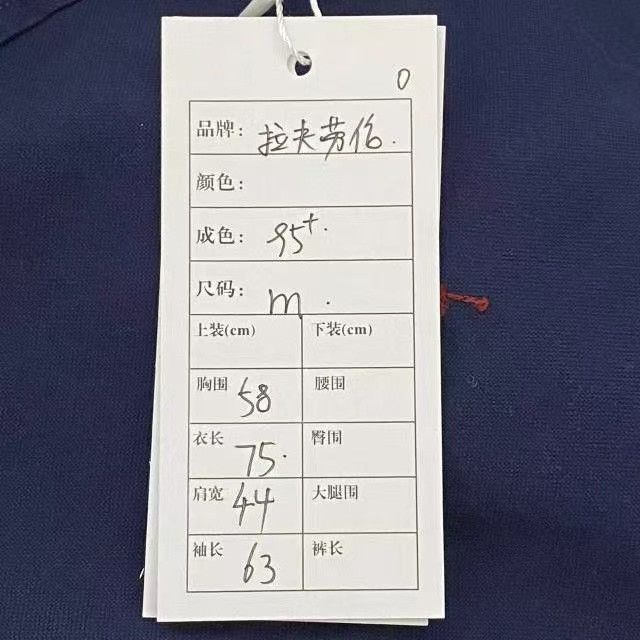 0
品牌: 拉夫劳伦.
颜色:
成色: 95+.
尺码: m.
上装(cm) 下装(cm)
胸围 58 腰围
衣长 75. 臀围
肩宽 44 大腿围
袖长 63 裤长